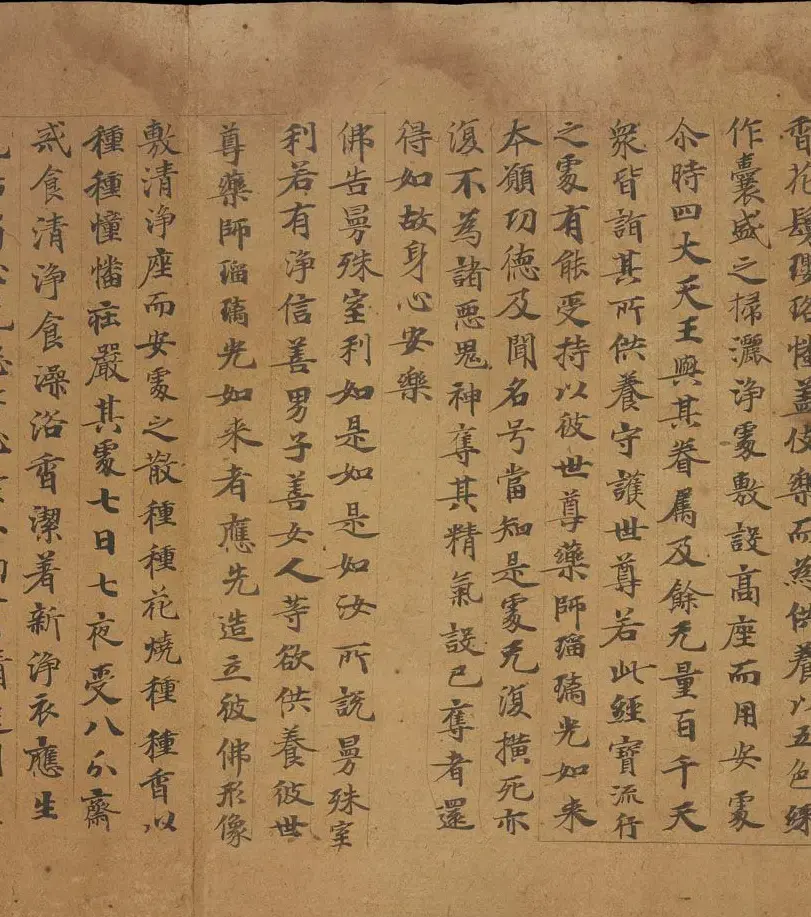 香花鬘瓔珞幡蓋伎樂而為供養以五色綵
作囊盛之掃灑淨處敷設高座而用安處
尒時四大天王與其眷屬及餘无量百千天
衆皆詣其所供養守護世尊若此經寶流行
之處有能受持以彼世尊藥師瑠璃光如来
本願功德及聞名号當知是處无復横死亦
復不為諸惡鬼神奪其精氣設已奪者還
得如故身心安樂
佛告曼殊室利如是如是如汝所說曼殊室
利若有淨信善男子善女人等欲供養彼世
尊藥師瑠璃光如来者應先造立彼佛形像
敷清淨座而安處之散種種花燒種種香以
種種憧憣莊嚴其處七日七夜受八分齋
戒食清淨食澡浴香潔著新淨衣應生